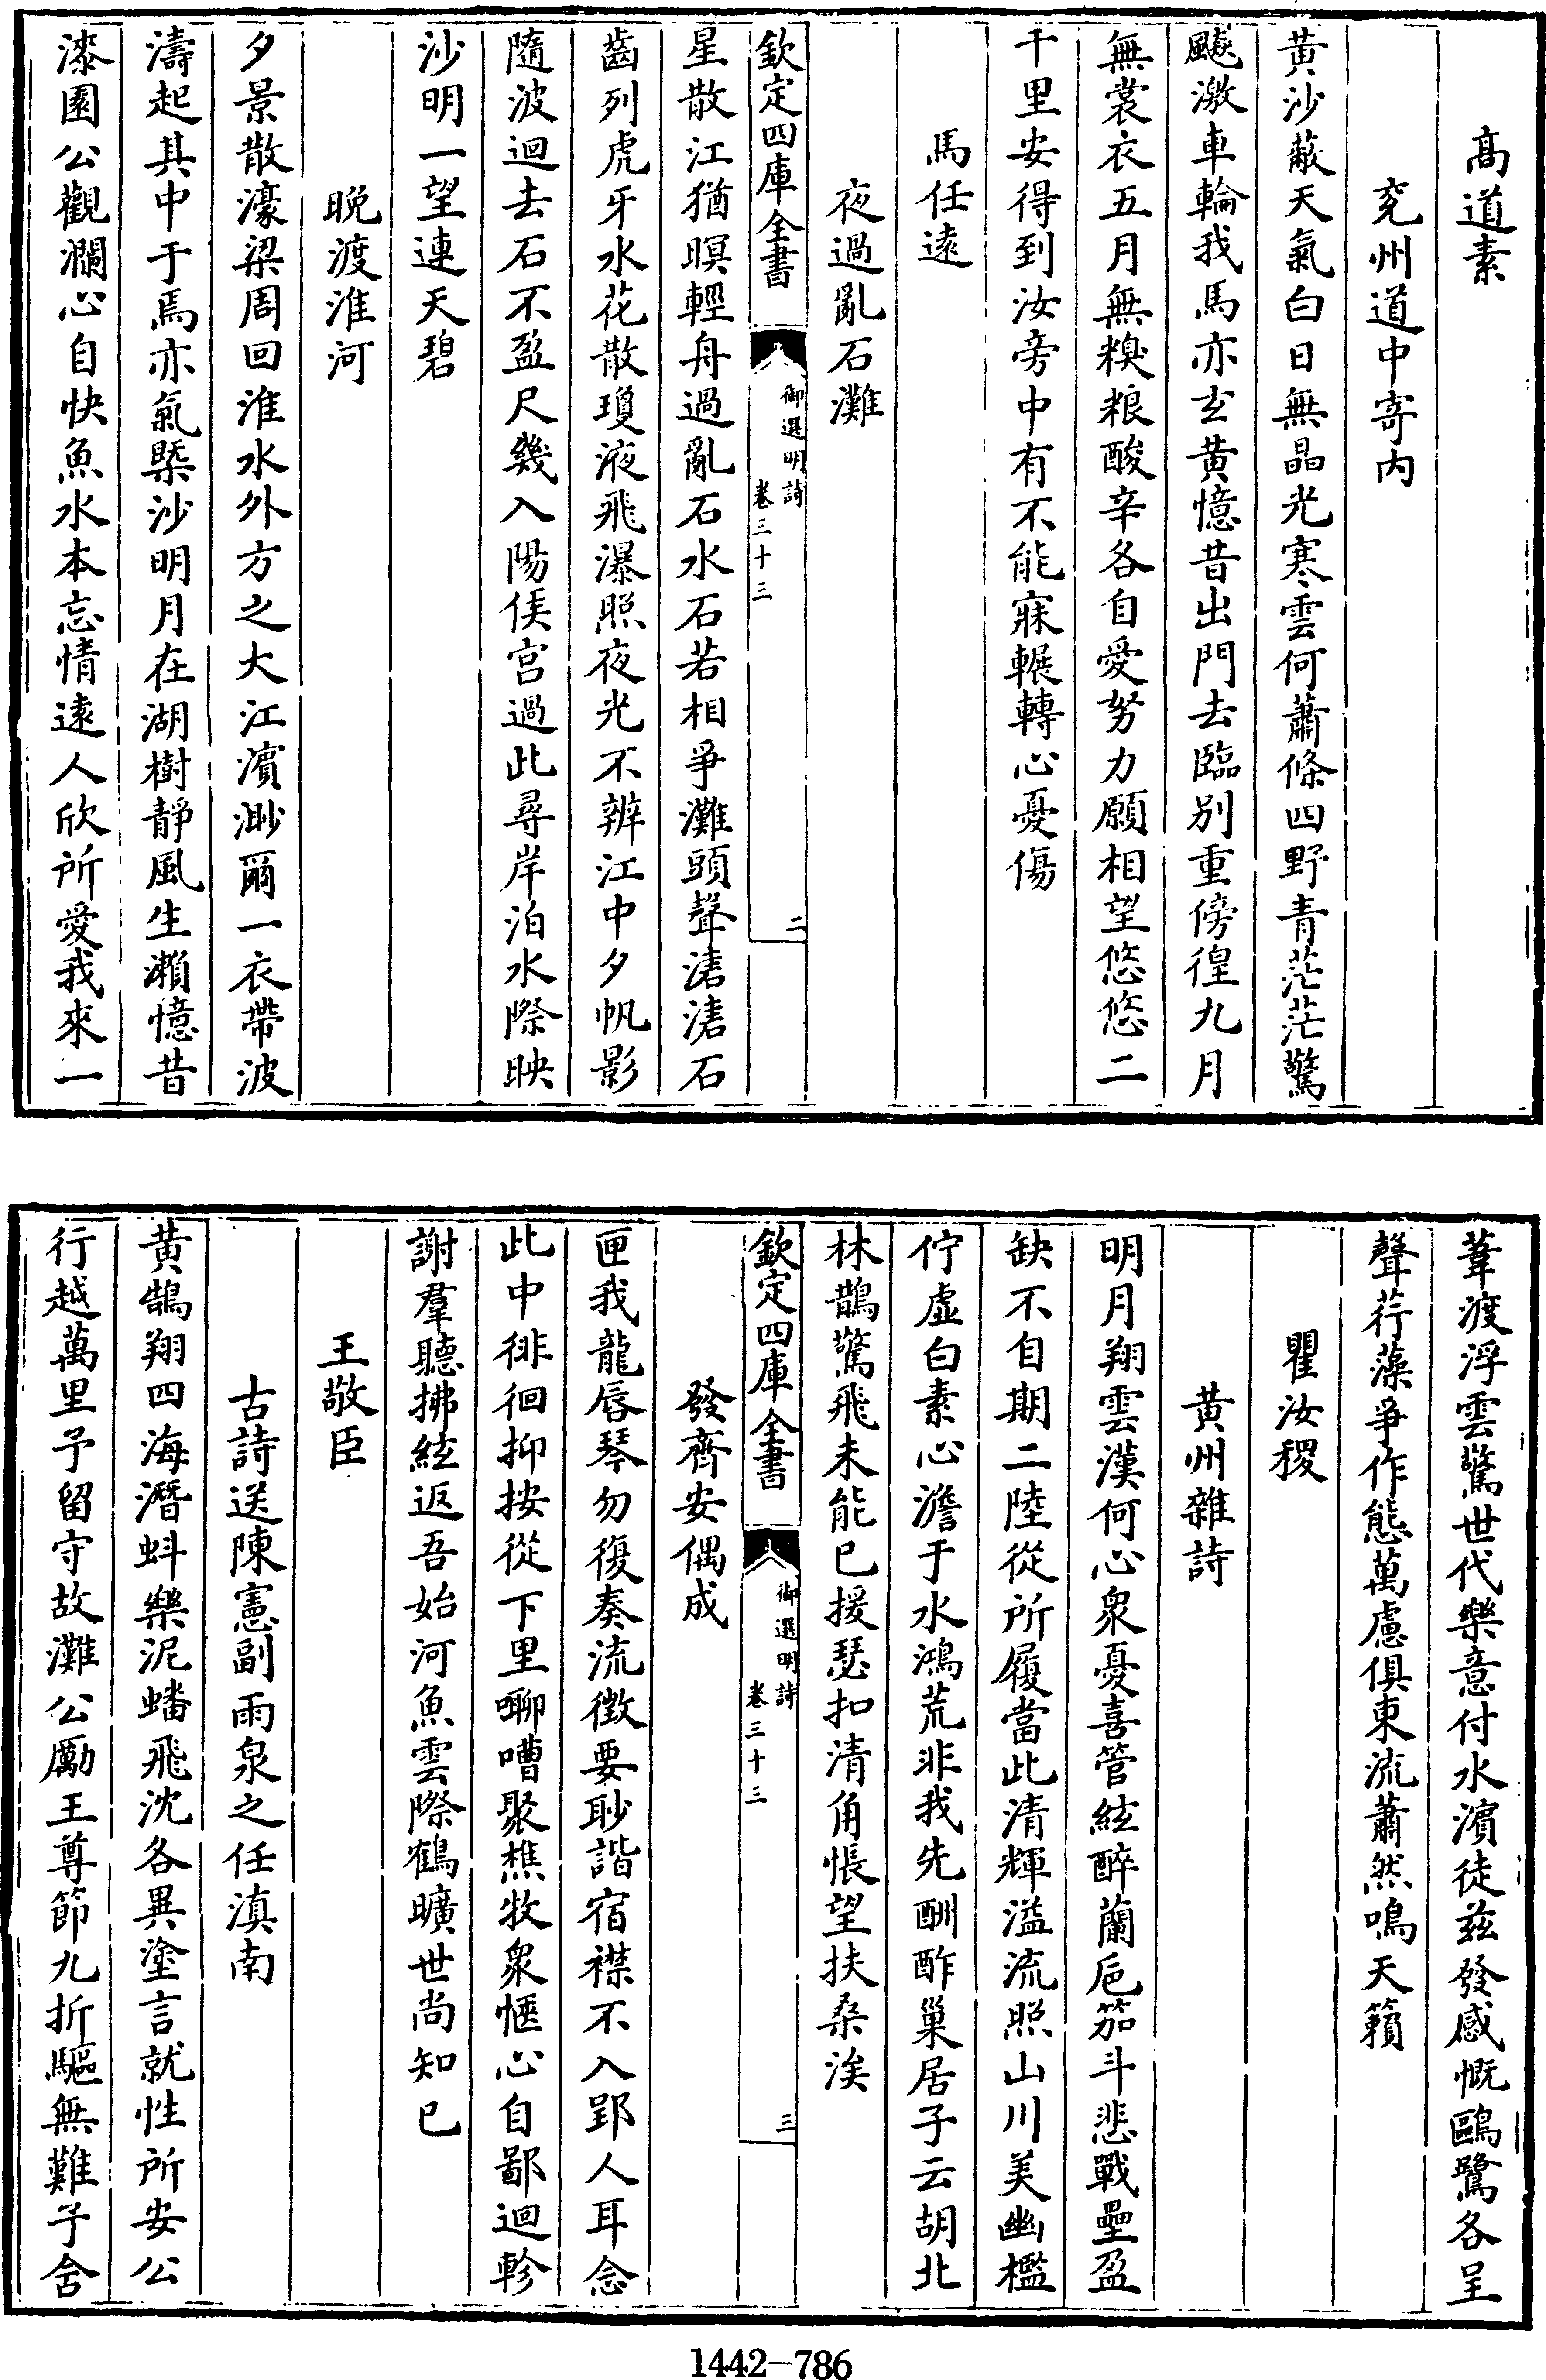 高道素
兖州道中寄内
黄沙蔽天氣白日無晶光寒雲何蕭條四野青茫茫驚
飈激車輪我馬亦玄黄憶昔出門去臨别重傍徨九月
無裳衣五月無糗粮酸辛各自愛努力願相望悠悠二
千里安得到汝旁中有不能寐輾轉心憂傷
馬任逺
夜過亂石灘
欽定四庫全書
御選明詩
卷三十三
二
星散江猶暝輕舟過亂石水石若相爭灘頭聲㵫㵫石
齒列虎牙水花散瓊液飛瀑照夜光不辨江中夕帆影
隨波迴去石不盈尺幾入陽侯宫過此尋岸泊水際映
沙明一望連天碧
晚渡淮河
夕景散濠梁周回淮水外方之大江濵渺爾一衣帶波
濤起其中于焉亦氣槩沙明月在湖樹靜風生瀨憶昔
漆園公觀瀾心自快魚水本忘情逺人欣所愛我來一
葦渡浮雲驚世代樂意付水濵徒兹發感慨鷗鷺各呈
聲荇藻爭作態萬慮俱東流蕭然鳴天籟
瞿汝稷
黄州雜詩
明月翔雲漢何心衆憂喜管絃醉蘭巵笳斗悲戰壘盈
缺不自期二陸從所履當此清輝溢流照山川美幽檻
佇虚白素心澹于水鴻荒非我先酬酢巢居子云胡北
林鵲驚飛未能已援瑟扣清角悵望扶桑涘
欽定四庫全書
御選明詩
卷三十三
三
發齊安偶成
匣我龍唇琴勿復奏流徴要眇諧宿襟不入郢人耳念
此中徘徊抑按從下里啣嘈聚樵牧衆愜心自鄙迴軫
謝羣聽拂絃返吾始河魚雲際鶴曠世尚知已
王敬臣
古詩送陳憲副雨泉之任滇南
黄鵠翔四海潛蚪樂泥蟠飛沈各異塗言就性所安公
行越萬里予留守故灘公勵王尊節九折驅無難予舍
1442-786